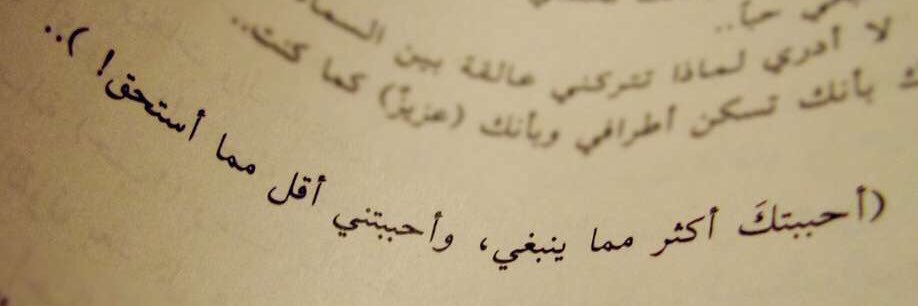 حباً..
لا أدري لماذا تتركني عالقة بين
بأنك تسكن أطرافي وبأنك (عزيز) كما كنت..
(أحببتكَ أكثر مما ينبغي، وأحببتني أقل مما أستحق! )..